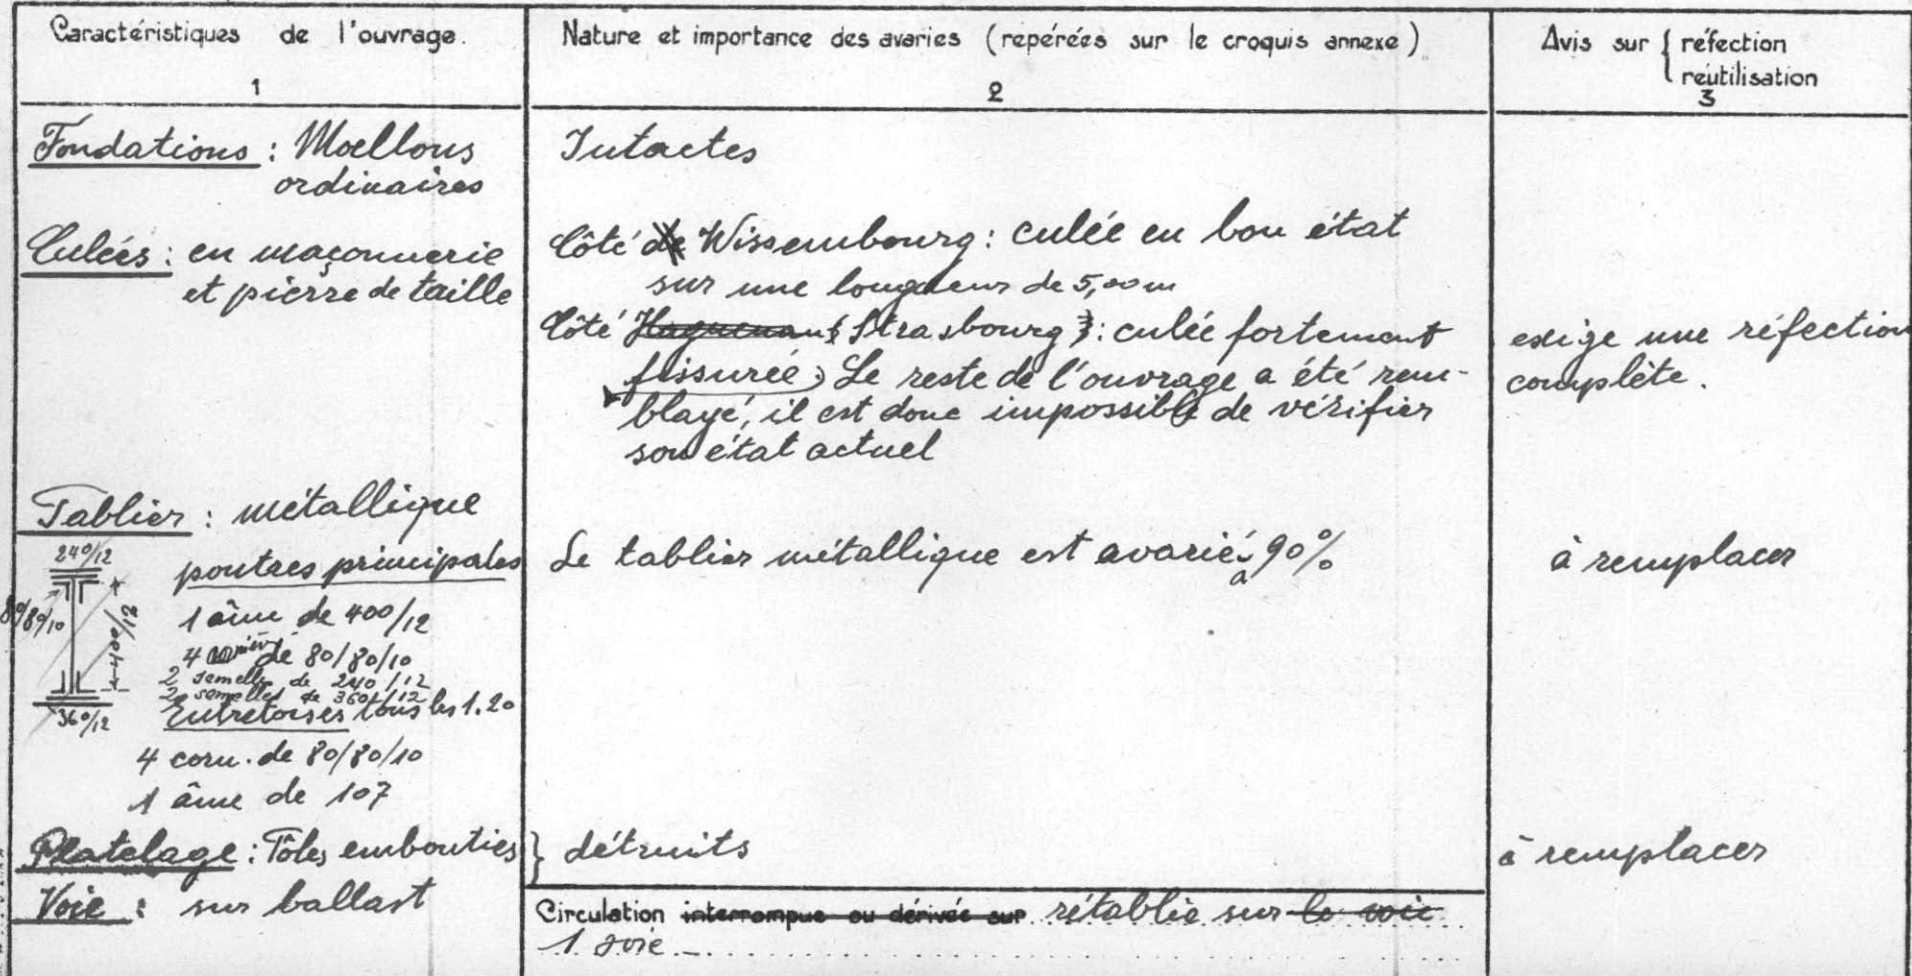 Caractéristiques de l'ouvrage.
1
Nature et importance des avaries (repérées sur le croquis annexe)
2
Avis sur { réfection
réutilisation
3
Fondations : Moellons
ordinaires
Intactes
Culées : en maçonnerie
et pierre de taille
Côté de Wissembourg : culée en bon état
sur une longueur de 5,00m
Côté Haguenau (Strasbourg) : culée fortement
fissurée) Le reste de l'ouvrage a été rem-
blayé, il est donc impossible de vérifier
son état actuel
exige une réfection
complète.
Tablier : métallique
240/12
80/80/10
400/12
360/12
poutres principales
1 âme de 400/12
4 de 80/80/10
2 semelles de 240/12
2 semelles de 360/12
Entretoises tous les 1.20
4 corn. de 80/80/10
1 âme de 107
Le tablier métallique est avarié à 90%
à remplacer
Platelage : Tôles embouties
Voie : sur ballast
} détruits
à remplacer
Circulation interrompue ou dérivée sur rétablie sur la voie
1 voie